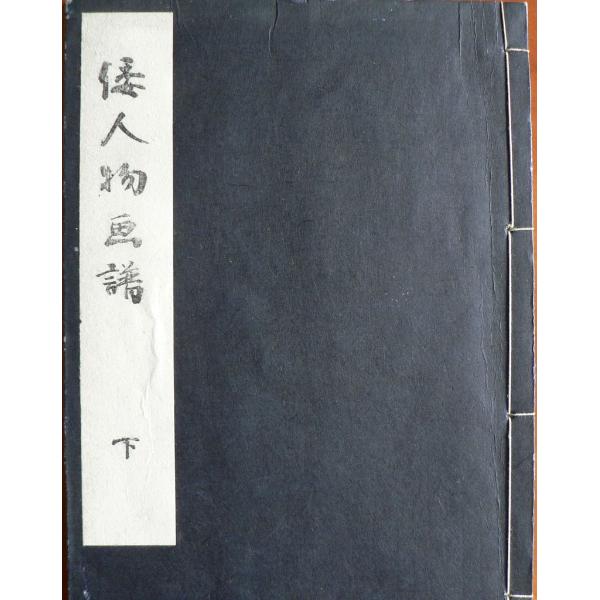 倭人物画譜
下